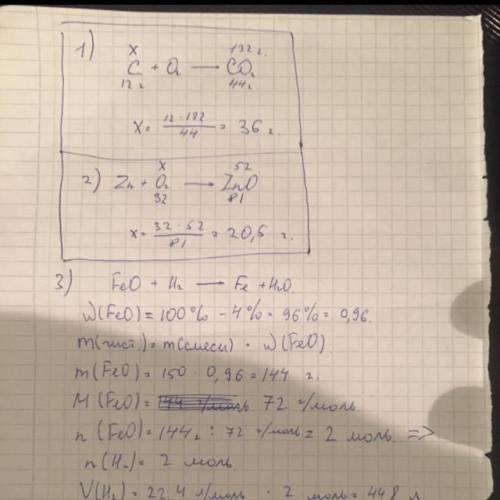 x 132 г.
1) C + O₂ → CO₂
12 г. 44 г.
x = 12 · 132 / 44 = 36 г.
x 52
2) Zn + O₂ → ZnO
32 81
x = 32 · 52 / 81 = 20,5 г.
3) FeO + H₂ → Fe + H₂O.
W(FeO) = 100% - 4% = 96% = 0,96.
m(чист.) = m(смеси) · W(FeO)
m(FeO) = 150 · 0,96 = 144 г.
M(FeO) = 72 г/моль.
n(FeO) = 144 г : 72 г/моль = 2 моль. =>
n(H₂) = 2 моль.
V(H₂) = 22,4 л/моль · 2 моль = 44,8 л